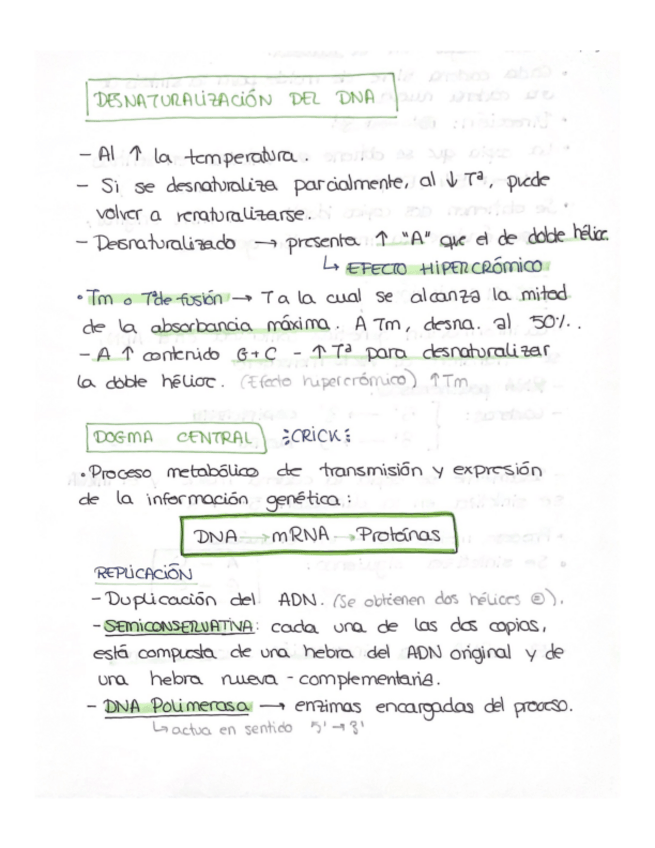 DESNATURALIZACIÓN DEL DNA
- Al ↑ la temperatura.
- Si se desnaturaliza parcialmente, al ↓ Tª, puede
volver a renaturalizarse.
- Desnaturalizado → presenta ↑ "A" que el de doble hélice.
↳ EFECTO HIPERCRÓMICO
• Tm o Tª de fusión → T a la cual se alcanza la mitad
de la absorbancia máxima. A Tm, desna. al 50%.
- A ↑ contenido G+C - ↑ Tª para desnaturalizar
la doble hélice. (Efecto hupercrómico) ↑Tm
DOGMA CENTRAL CRICK
• Proceso metabólico de transmisión y expresión
de la información genética:
DNA → mRNA → Proteínas
REPLICACIÓN
- Duplicación del ADN. (Se obtienen dos hélices ②).
- SEMICONSERVATIVA: cada una de las dos copias,
está compusta de una hebra del ADN original y de
una hebra nueva - complementaria.
- DNA Polimerasa → enzimas encargadas del proceso.
↳ actua en sentido 5' → 3'